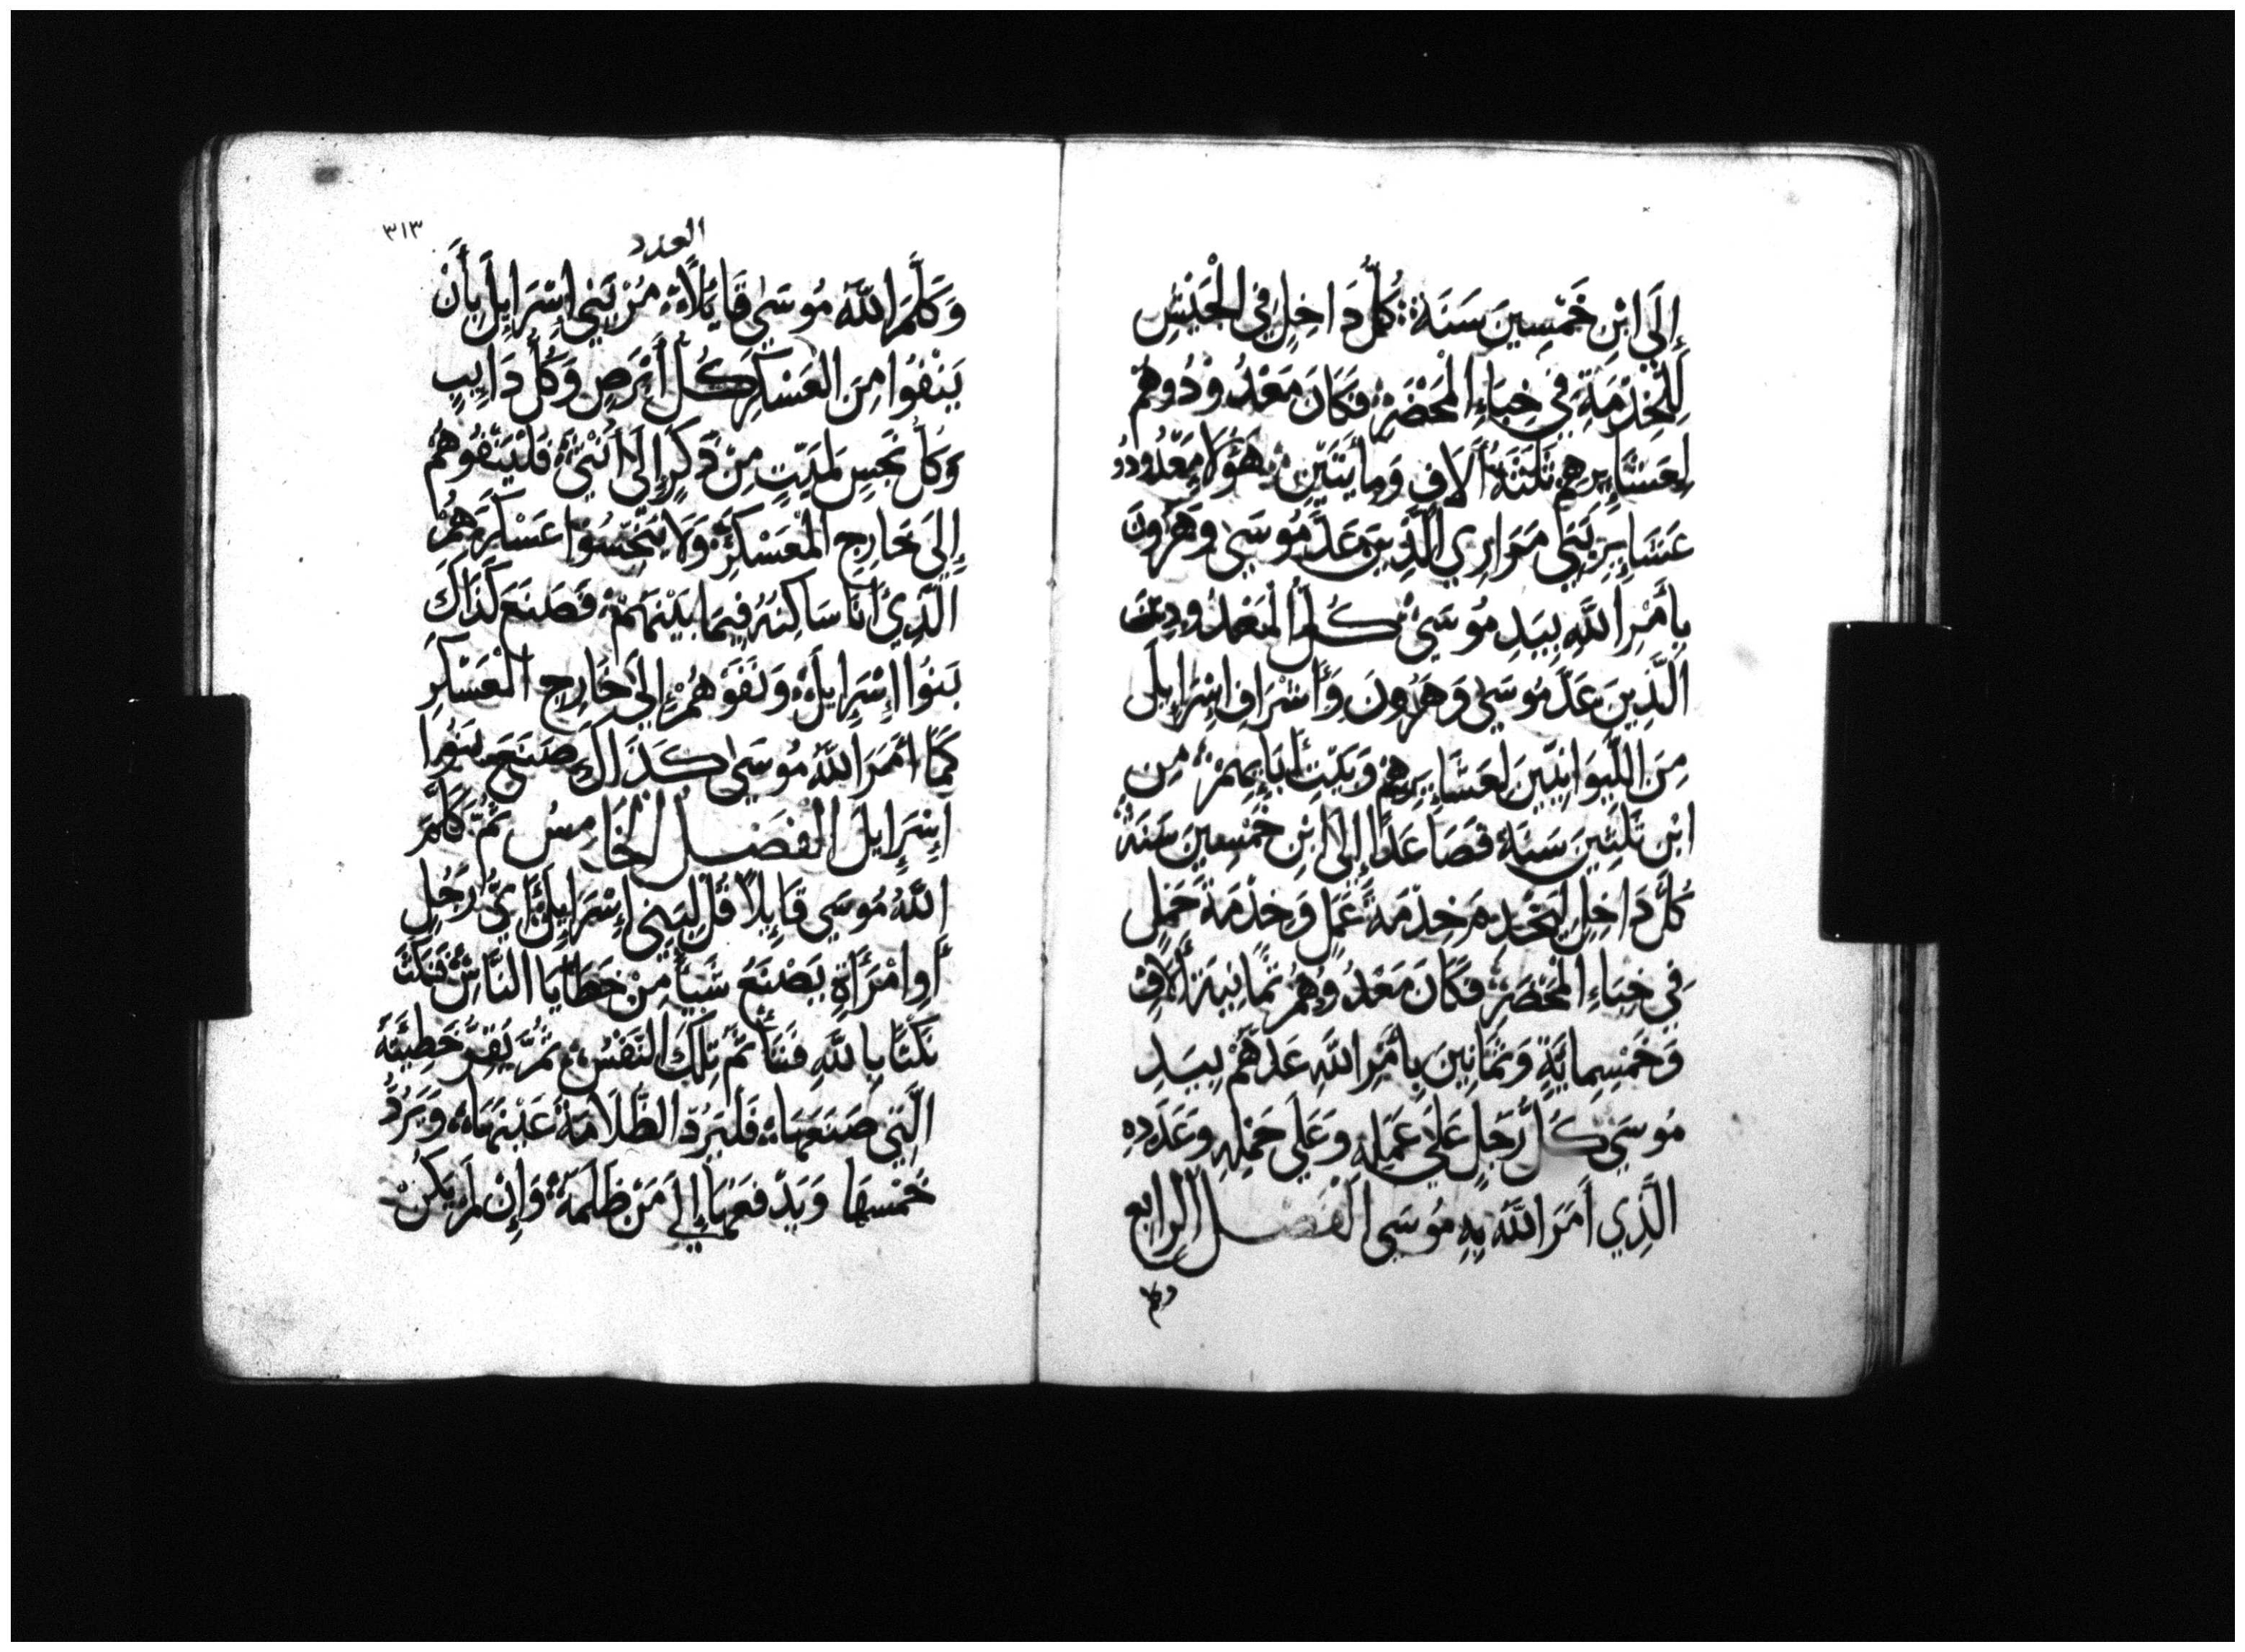 إِلَى ابْنِ خَمْسِينَ سَنَةً كُلُّ دَاخِلٍ فِي الْجَيْشِ
لِلْخِدْمَةِ فِي خِبَاءِ الْمَحْضَرِ فَكَانَ مَعْدُودُوهُمْ
لِعَشَايِرِهِمْ ثَلَثَةُ أَلَافٍ وَمِأَيتَيْنِ هَؤُلَاءِ مَعْدُودُو
عَشَايِرِ بَنِي مَرَارِي الَّذِينَ عَدَّ مُوسَى وَهَرُونَ
بِأَمْرِ اللَّهِ بِيَدِ مُوسَى كُلُّ الْمَعْدُودِينَ
الَّذِينَ عَدَّ مُوسَى وَهَرُونَ وَأَشْرَافِ إِسْرَايِلَ
مِنَ اللِّيوَانِيِّينَ لِعَشَايِرِهِمْ وَبَيْتِ أَبَايِهِمْ مِن
ابْنِ ثَلَثِينَ سَنَةً فَصَاعَدًا إِلَى ابْنِ خَمْسِينَ سَنَةً
كُلُّ دَاخِلٍ لِيَخْدِمَ خِدْمَةَ عَمَلٍ وَخِدْمَةَ حَمْلٍ
فِي خِبَاءِ الْمَحْضَرِ فَكَانَ مَعْدُوُهُمْ ثَمَانِيَةَ أَلَافٍ
وَخَمْسِمِايَةٍ وَثَمَانِينَ بِأَمْرِ اللَّهِ عَدَّهُمْ بِيَدِ
مُوسَى كُلُّ رَجُلٍ عَلَى عَمَلِهِ وَعَلَى حَمْلِهِ وَعَدَدِهِ
الَّذِي أَمَرَ اللَّهُ بِهِ مُوسَى الفَصْل الرابع
وكلم
٣١٣
العدد
وَكَلَّمَ اللَّهُ مُوسَى قَايِلًا مُرْ بَنِي إِسْرَايِلَ بِأَنْ
يَنْفُوا مِنَ الْعَسْكَرِ كُلُّ أَبْرَصٍ وَكُلُّ دَايِبٍ
وَكُلُّ نَجِسٍ لِمَيِّتٍ مِنْ ذَكَرٍ إِلَى أُنْثَى فَلْيَنْفُوهُمْ
إِلَى خَارِجِ الْمُعَسْكَرِ وَلَا يُنَجِّسُوا عَسْكَرَهُمُ
الَّذِي أَنَا سَاكِنُهُ فِيمَا بَيْنَهُمْ فَصَنَعَ كَذَاكَ
بَنُوا إِسْرَايِلَ وَنَفَوْهُمْ إِلَى خَارِجِ الْعَسْكَرِ
كَمَا أَمَرَ اللَّهُ مُوسَى كَذَاكَ صَنَعَ بَنُوا
إِسْرَايِلَ الْفَصْلُ الْخَامِسُ ثُمَّ كَلَّمَ
اللَّهُ مُوسَى قَايِلًا قُلْ لِبَنِي إِسْرَايِلَ أَيُّ رَجُلٍ
أَوِ امْرَأَةٍ يَصْنَعُ شَيأً مِنْ خَطَايَا النَّاسِ فَنَكَثَ
نَكْثًا بِاللَّهِ فَتَأْثَمُ تِلْكَ النَّفْسُ ثُمَّ يُقِرُّ خَطِيئَتَهُ
الَّتِي صَنَعَهَا فَلْيَرُدَّ الظُّلَامَةَ عَيْنَهَا وَيَرُدُّ
خُمْسَهَا وَيَدْفَعَهَا إِلَى مَنْ ظَلَمَهُ وَإِنْ لَمْ يَكُنْ